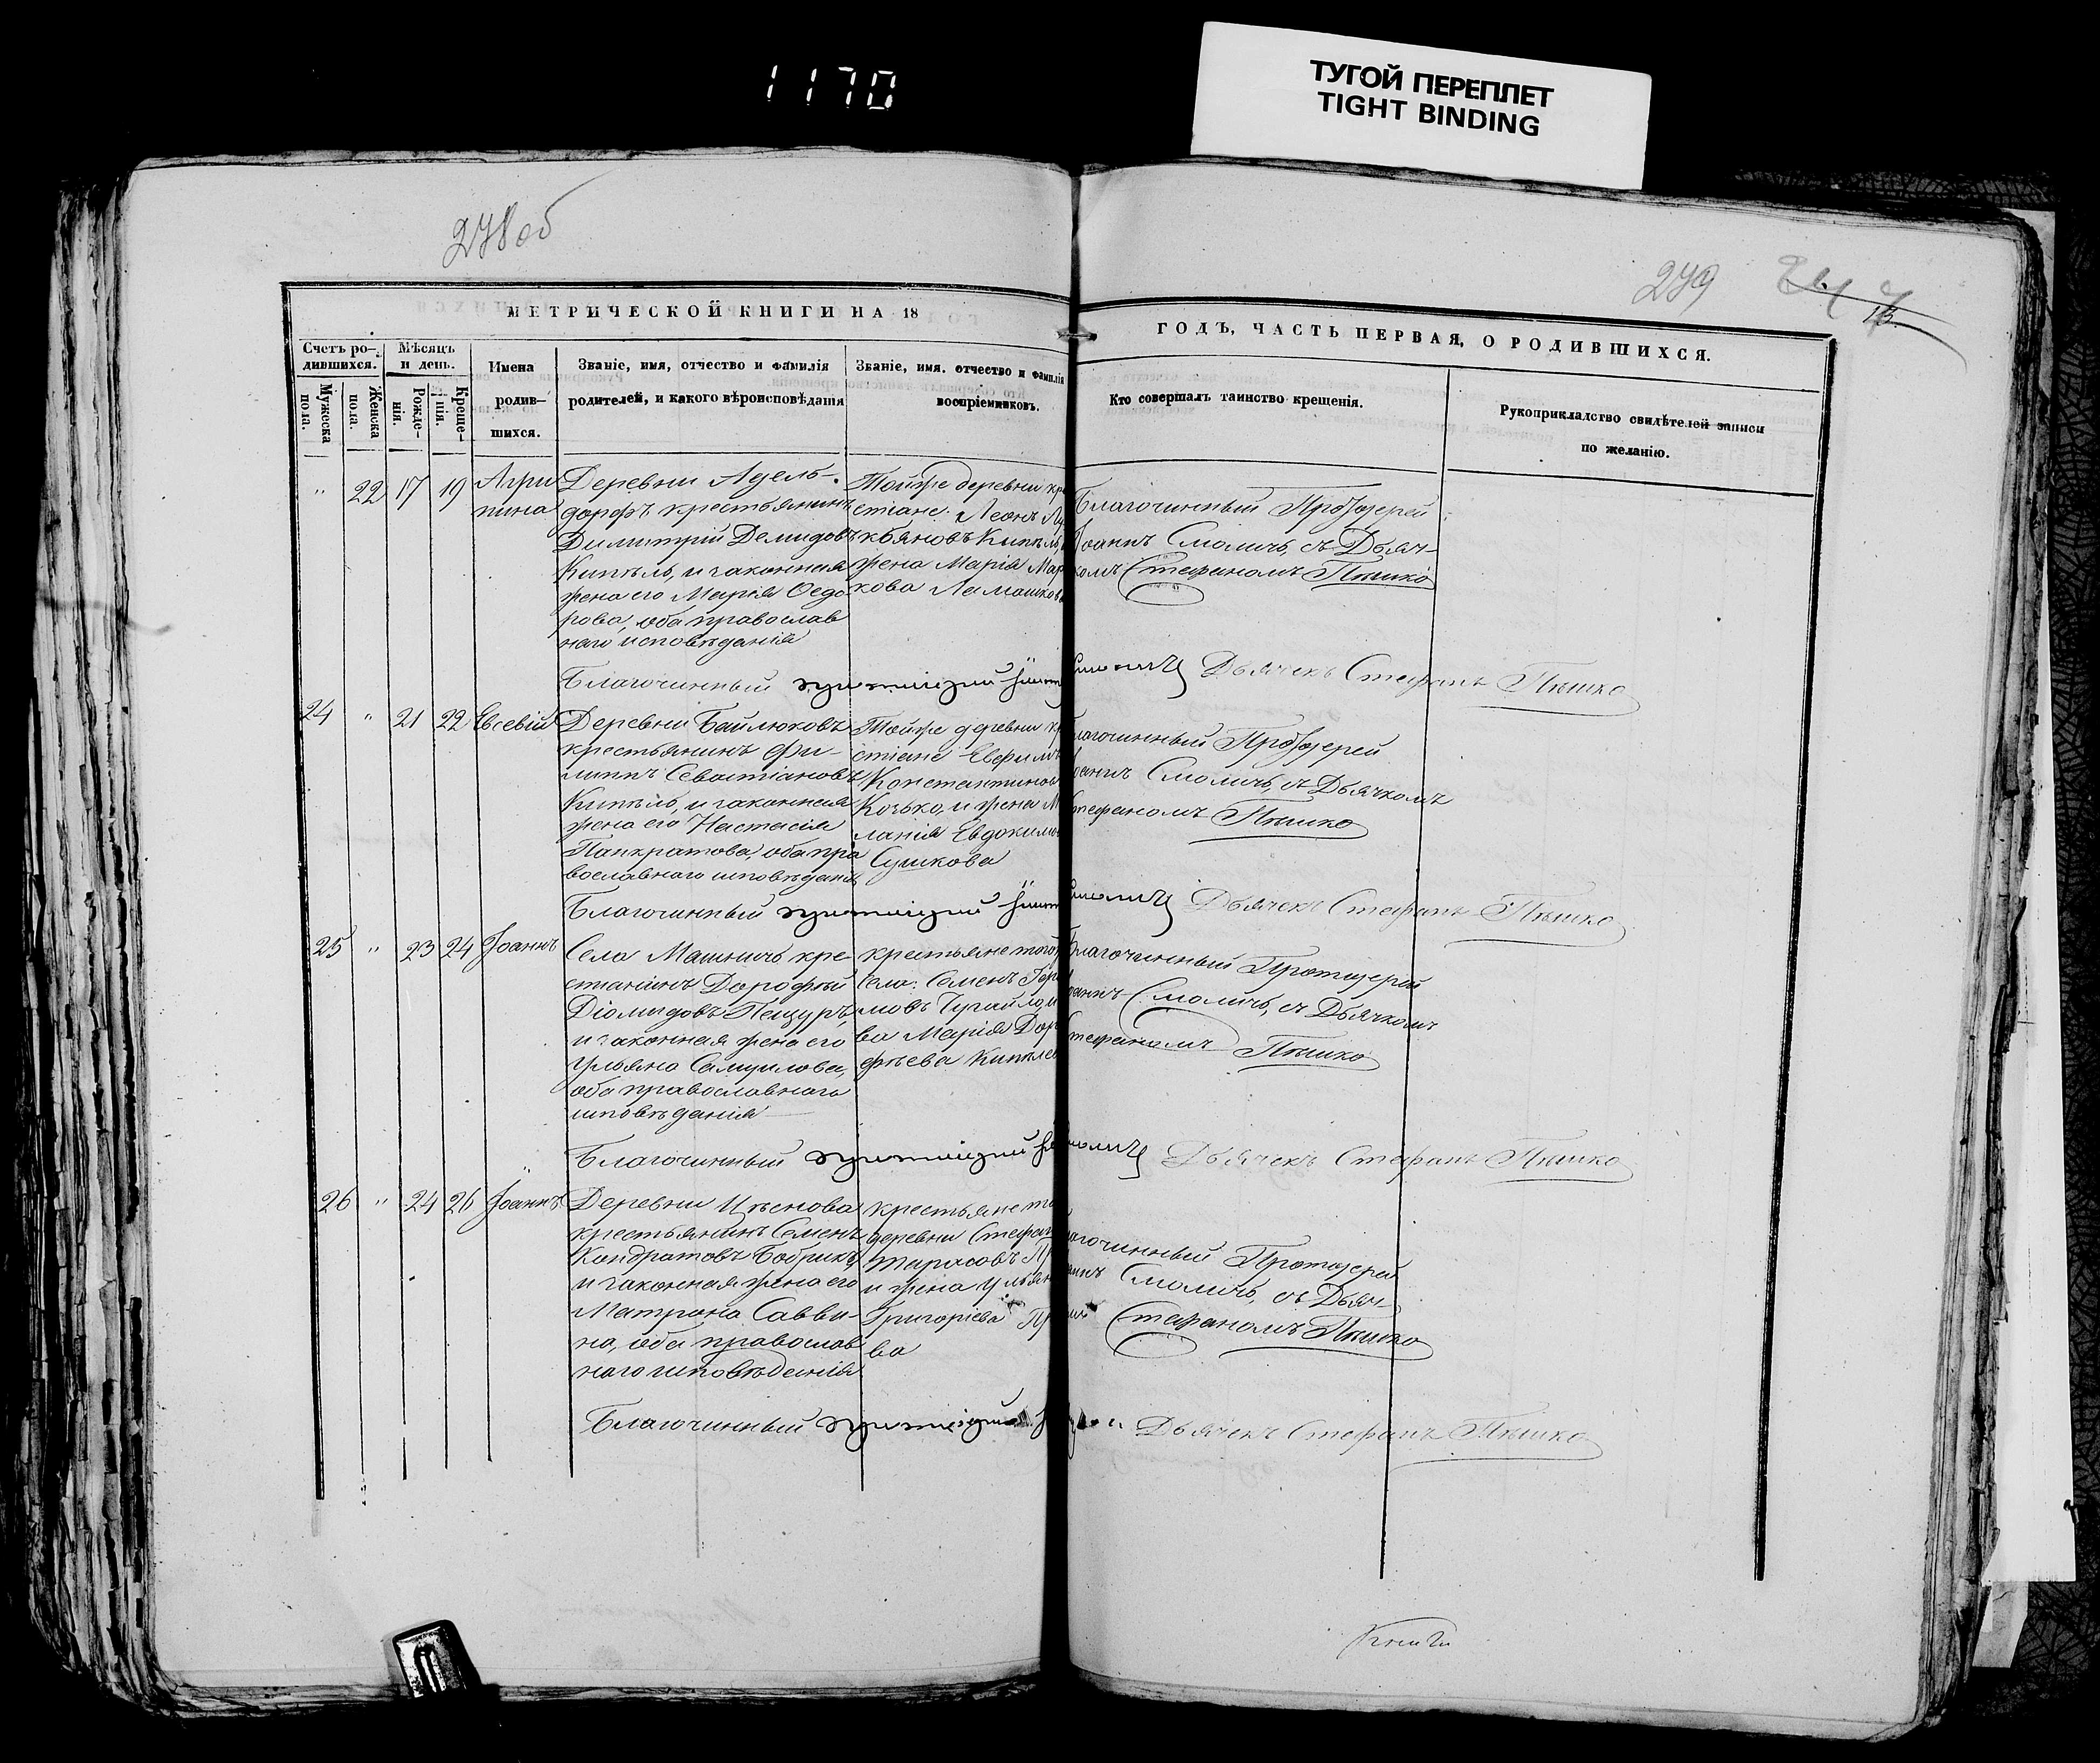 1170
ТУГОЙ ПЕРЕПЛЕТ
TIGHT BINDING
278 об
279
МЕТРИЧЕСКОЙ КНИГИ НА 18
ГОДЪ, ЧАСТЬ ПЕРВАЯ, О РОДИВШИХСЯ.
Счетъ ро-
дившихся.
Мужеска
пола.
Женска
пола.
Мѣсяцъ
и день.
Рожде-
нія.
Креще-
нія.
Имена
родив-
шихся.
Званіе, имя, отчество и фамилія
родителей, и какого вѣроисповѣданія
Званіе, имя. отчество и фамилія
воспріемниковъ.
Кто совершалъ таинство крещенія.
Рукоприкладство свидѣтелей записи
по желанію.
" 22 17 19
Агри
пина
Деревни Адель-
дорфъ крестьянинъ
Димитрій Демидовъ
Кипѣль, и законная
жена его Марія Ѳедо
рова, оба православ
наго исповѣданія
Тойже деревни кре
стіане: Леонъ Лу
кьяновъ Кипѣль,
жена Марія Мар
кова Ламашкова
Благочинный Протоіерей
Іоаннъ Смоличъ, съ Дьяч-
комъ Стефаномъ Пѣшко
Благочинный Протоіерей Іоаннъ Смоличъ Дьячекъ Стефанъ Пѣшко
24 " 21 22 Евсевій
Деревни Байлюковъ
крестьянинъ Фи-
липпъ Севастіановъ
Кипѣль, и законная
жена его Настасія
Панкратова, оба пра
вославнаго исповѣданія
Тойже деревни кр
стіане Евфимъ
Константиновъ
Козько, и жена М
ланія Евдокимо
Сушкова
лагочинный Протоіерей
оаннъ Смоличъ, съ Дьячкомъ
тефаномъ Пѣшко
Благочинный Протоіерей Іоаннъ Смоличъ Дьячекъ Стефанъ Пѣшко
25 " 23 24 Іоаннъ
Села Машничъ кре-
стіанинъ Дорофей
Діомидовъ Пещуръ,
и законная жена его
Ульяна Самуилова,
оба православнаго
исповѣданія
крестьяне того
села: Семенъ
мовъ Чугайло, и
ва Марія Дор
фѣева Кипѣле
Благочинный Протоіерей
оаннъ Смоличъ, съ Дьячкомъ
тефаномъ Пѣшко
Благочинный Протоіерей Смоличъ Дьячекъ Стефанъ Пѣшко
26 " 24 26 Іоаннъ
Деревни Цѣснова
крестьянинъ Семенъ
Кондратовъ Бобрикъ,
и законная жена его
Матрона Савви-
на, оба православ
наго исповѣданія
крестьяне то
деревни Стефан
Тарасовъ Пр
и жена Ульян
Григоріева Пр
ва
агочинный Протоіерей
аннъ Смоличъ, съ Дьяч-
Стефаномъ Пѣшко
Благочинный Протоіерей Дьячекъ Стефанъ Пѣшко